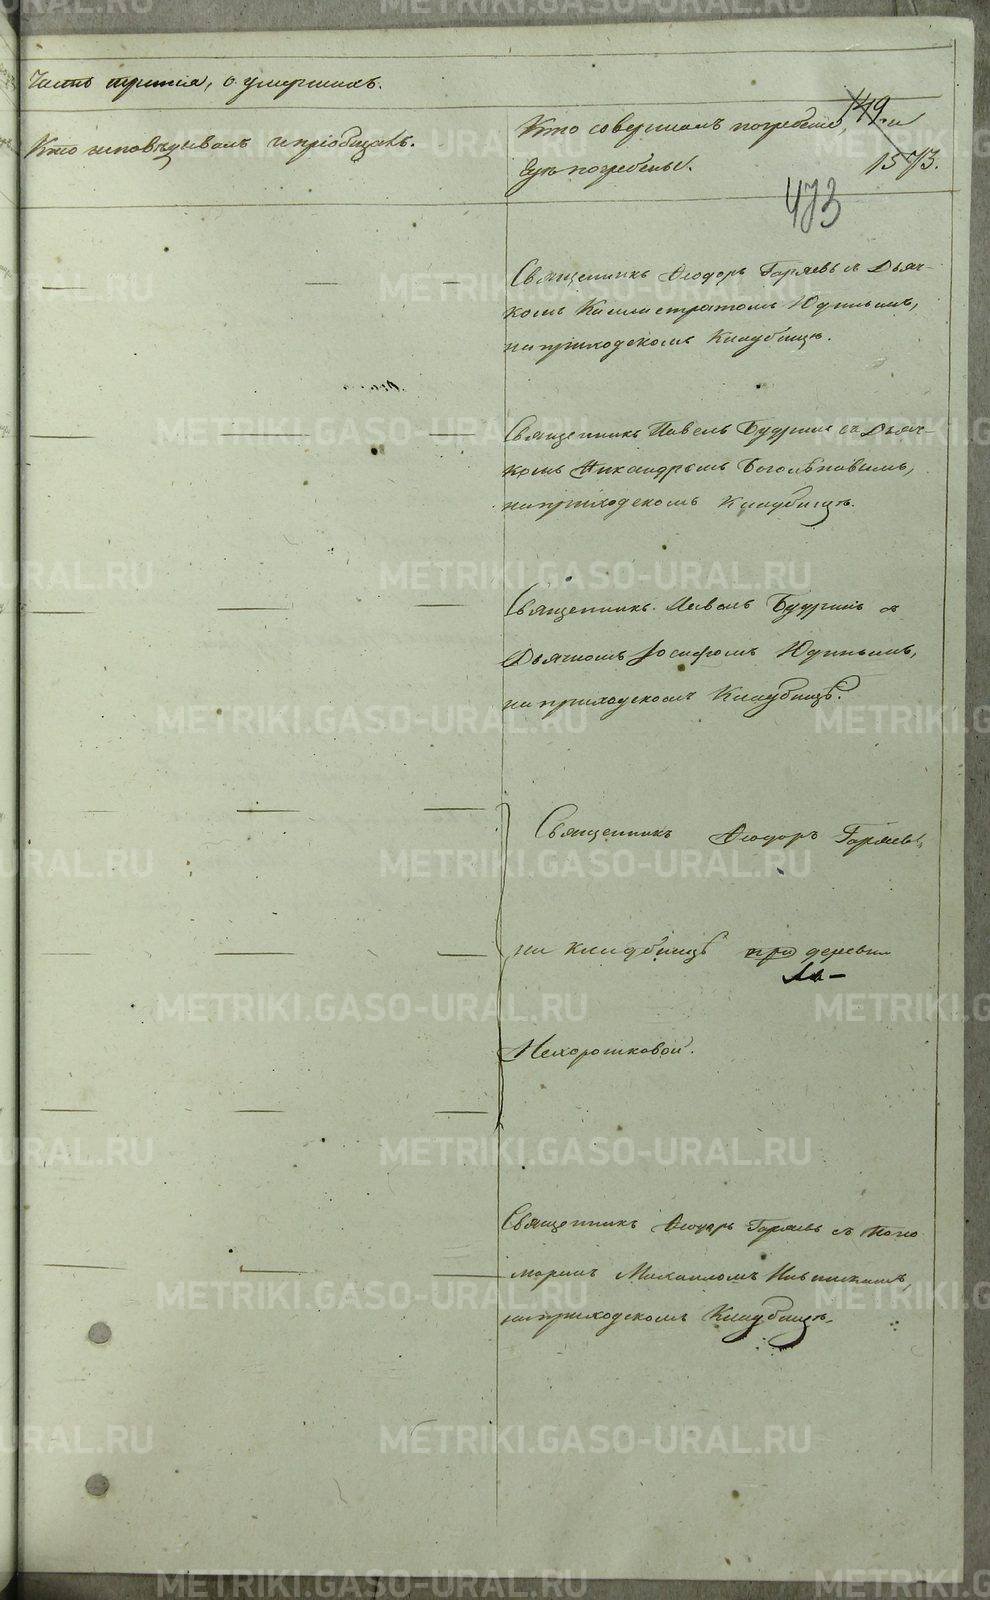 Часть третія, о умершихъ.
149
Кто исповѣдывалъ и пріобщалъ.
Кто совершалъ погребеніе, и
гдѣ погребены.
1573.
473
Священникъ Ѳеодоръ Гаряевъ съ Дьяч-
комъ Каллистратомъ Юдинымъ,
на приходскомъ Кладбищѣ.
Священникъ Павелъ Будринъ съ Дьяч-
комъ Никандромъ Боголѣповымъ,
на приходскомъ Кладбищѣ.
Священникъ Павелъ Будринъ съ
Дьячкомъ Іосифомъ Юдинымъ,
на приходскомъ Кладбищѣ.
Священникъ Ѳеодоръ Гаряевъ,
на кладбищѣ при деревни
Нехорошковой.
Священникъ Ѳеодоръ Гаряевъ съ Поно
маремъ Михаиломъ
на приходскомъ Кладбищѣ.
METRIKI.GASO-URAL.RU